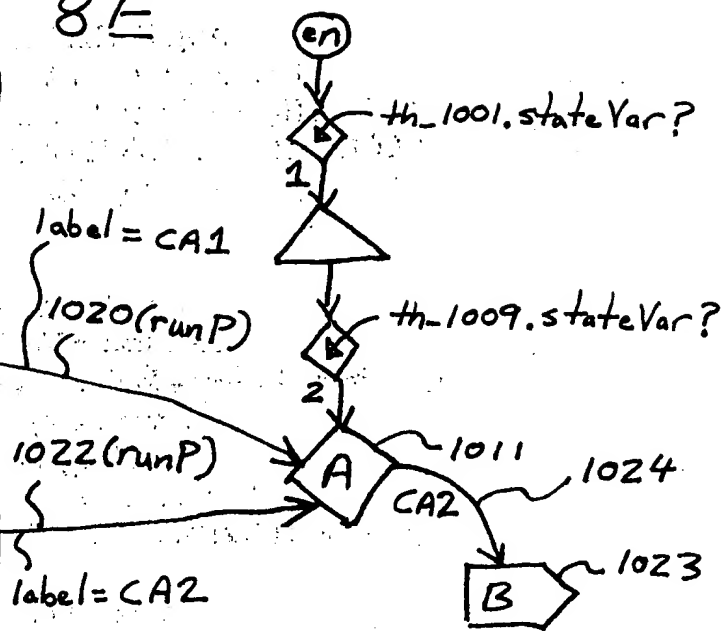 8E
en
th_1001.stateVar?
1
label = CA1
1020(runP)
th_1009.stateVar?
2
1011
1022(runP)
A
1024
CA2
1023
B
label = CA2